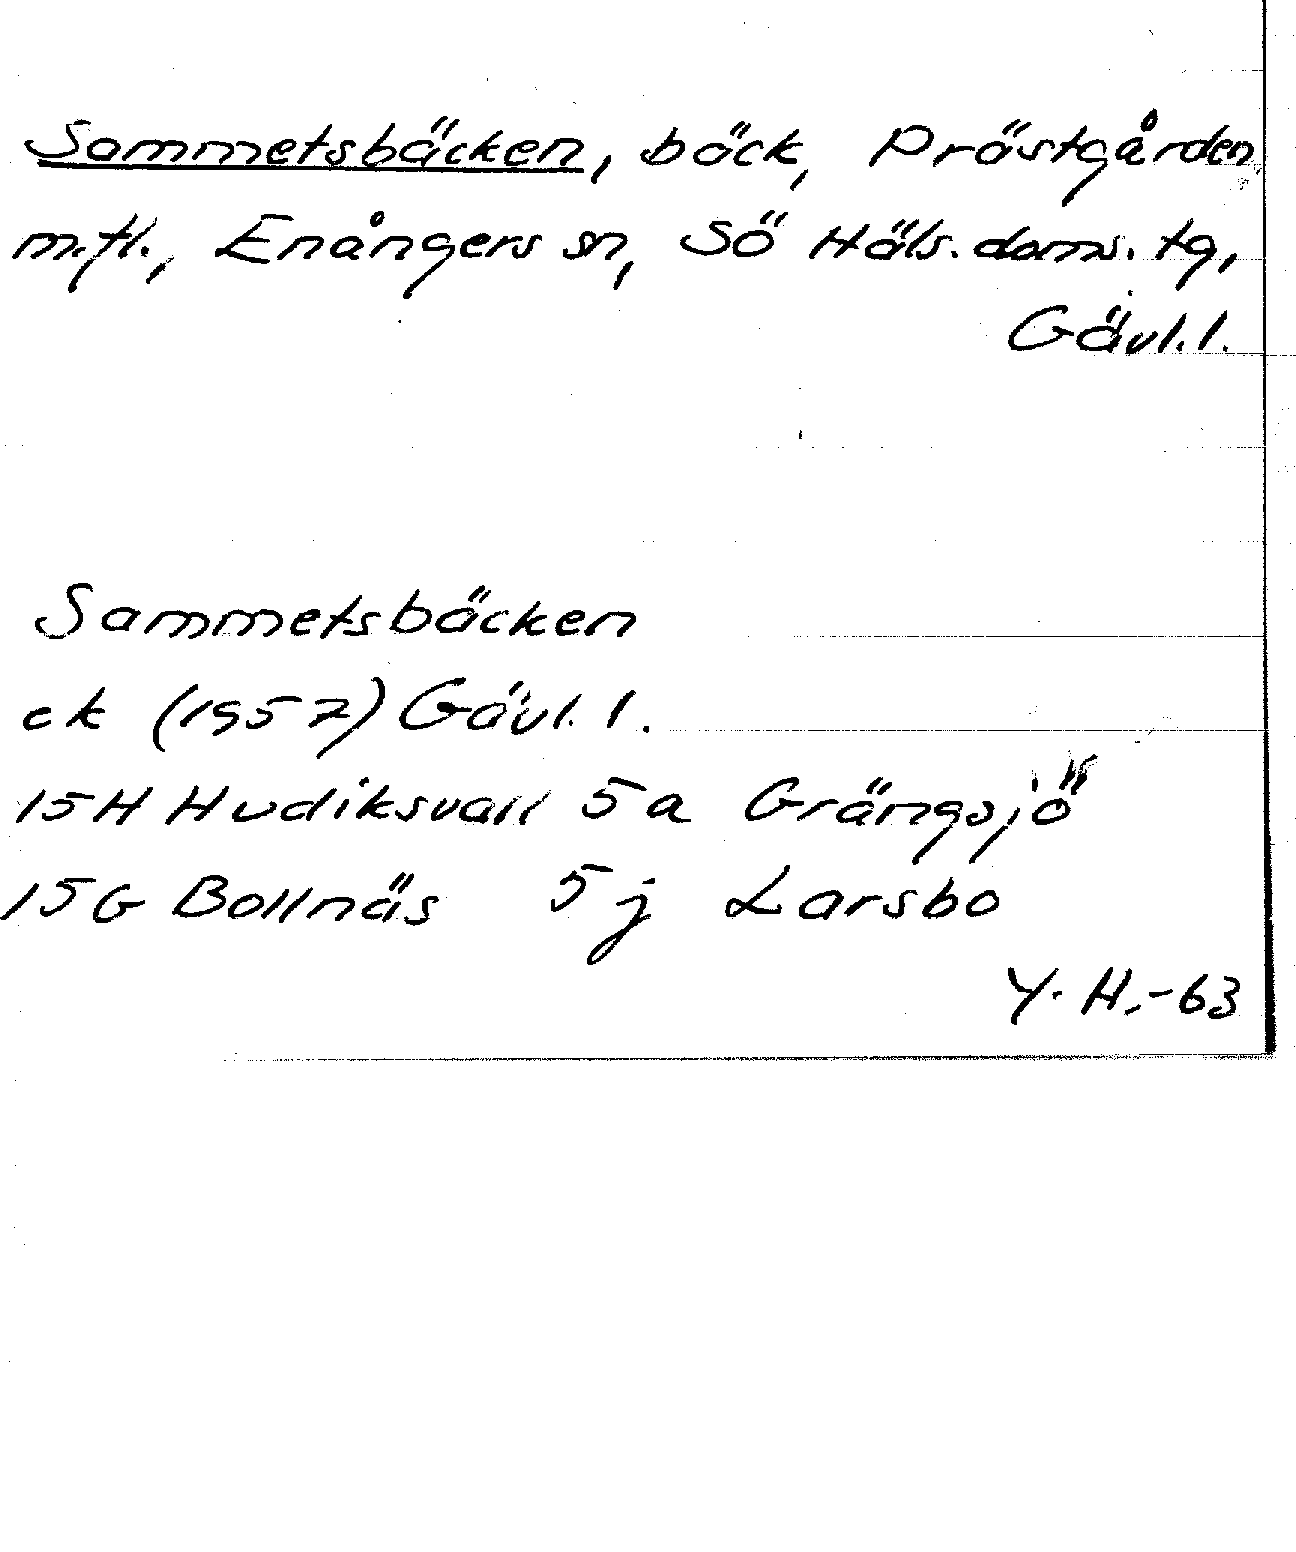 Sammetsbäcken, bäck, Prästgården
m.fl., Enångers sn, Sö Häls. doms. tg,
Gävl. l.
Sammetsbäcken
ek (1957) Gävl. l.
15H Hudiksvall 5a Grängsjö
15G Bollnäs 5j Larsbo
Y. H. -63